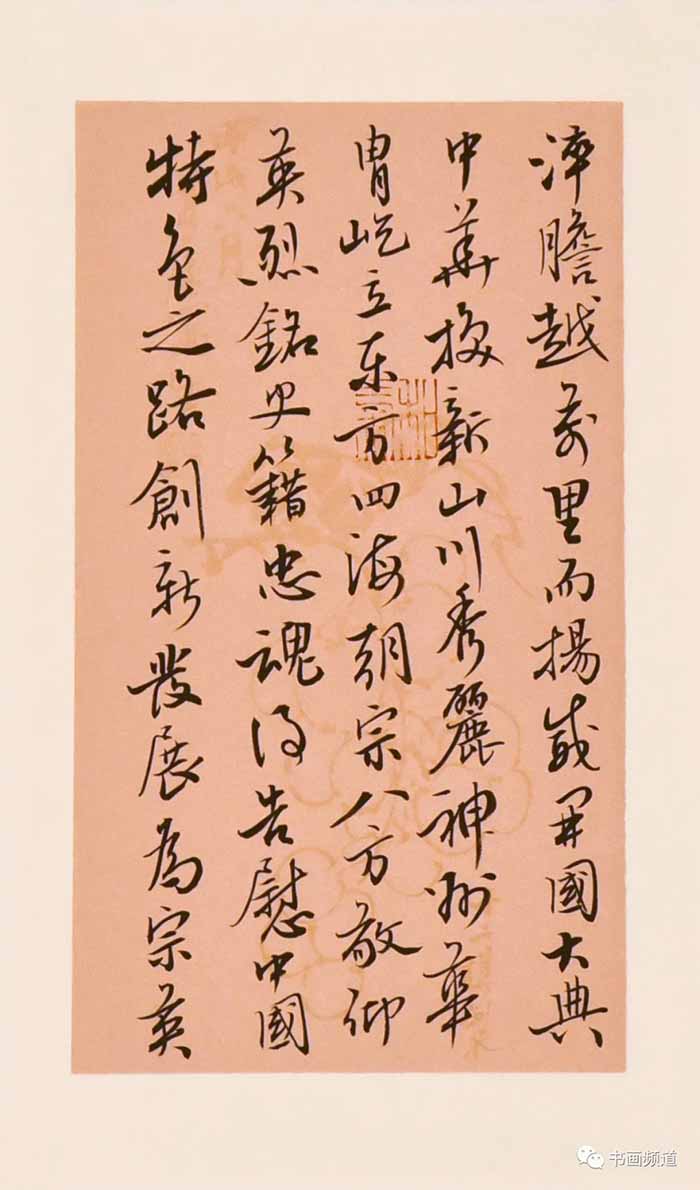 淬膽越萬里而揚威開國大典
中華換新山川秀麗神州華
胄屹立東方四海朝宗八方敬仰
英烈銘史籍忠魂得告慰中國
特色之路創新發展為宗英
书画频道